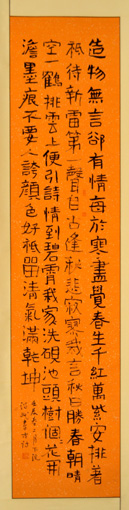 造物無言卻有情每於寒盡覺春生千紅萬紫安排著
祇待新雷第一聲自古逢秋悲寂寥我言秋日勝春朝晴
空一鶴排雲上便引詩情到碧霄我家洗硯池頭樹個々花開
澹墨痕不要人誇顏色好祇留清氣滿乾坤